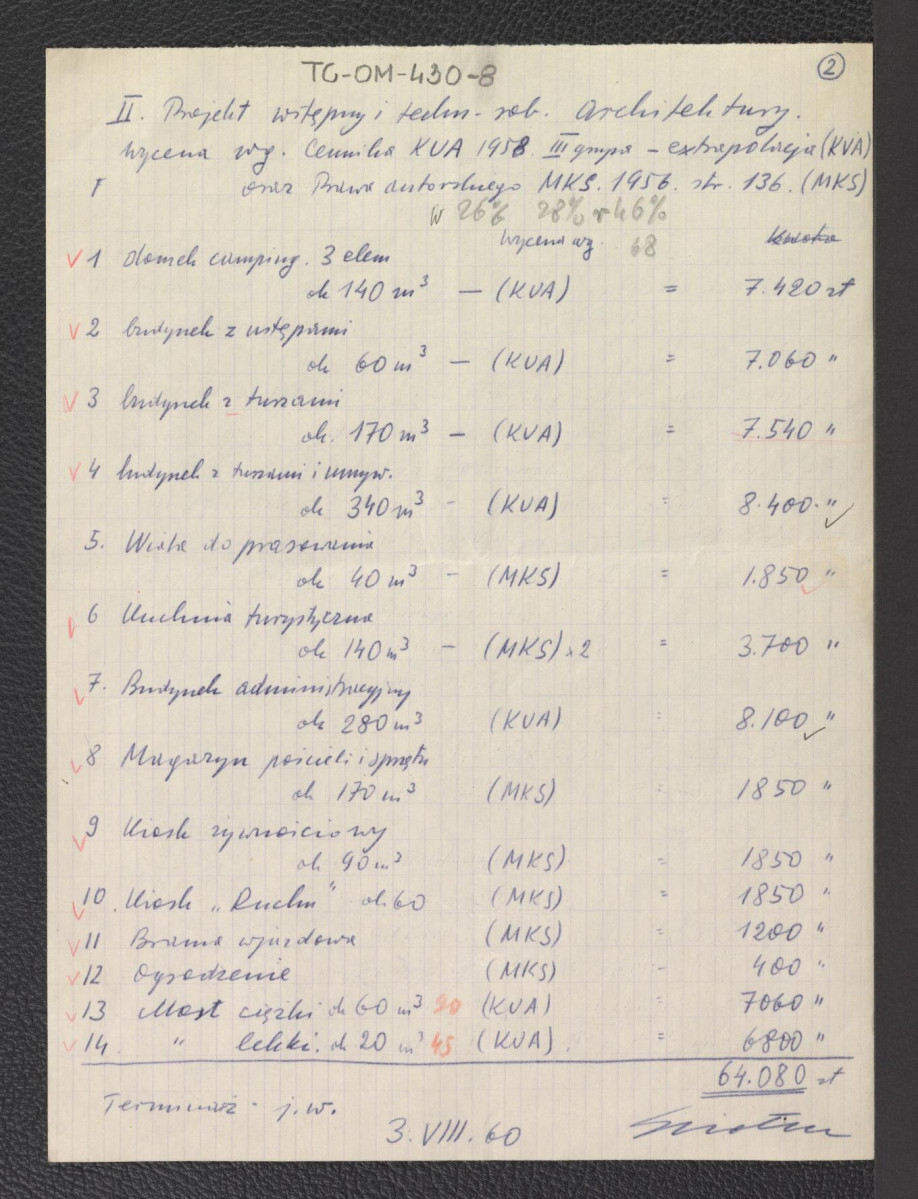 TG-OM-430-8
2
II. Projekt wstępny i techn.-rob. architektury.
Wycena wg. Cennika KUA 1958 III grupa - extrapolacja (KUA)
oraz Prawa autorskiego MKS. 1956. str. 136. (MKS)
w 26% 28% 46%
wycena wg. 68 kwota
1 domek camping. 3 elem
ok 140 m³ — (KUA) = 7.420 zł
2 budynek z ustępami
ok 60 m³ — (KUA) = 7.060 "
3 budynek z tuszami
ok. 170 m³ — (KUA) = 7.540 "
4 budynek z tuszami i umyw.
ok 340 m³ - (KUA) = 8.400 "
5. Wiata do prasowania
ok 40 m³ - (MKS) = 1.850 "
6 Kuchnia turystyczna
ok 140 m³ - (MKS) x2 = 3.700 "
7. Budynek administracyjny
ok 280 m³ (KUA) = 8.100 "
8 Magazyn pościeli i sprzętu
ok 170 m³ (MKS) = 1850 "
9 Kiosk żywnościowy
ok 90 m³ (MKS) = 1850 "
10. Kiosk „Ruchu" ok 60 (MKS) = 1850 "
11 Brama wjazdowa (MKS) = 1200 "
12 Ogrodzenie (MKS) - 400 "
13 Most ciężki ok 60 m³ 90 (KUA) = 7060 "
14. " lekki. ok 20 m³ 45 (KUA). = 6800 "
64.080 zł
Terminarz - j.w.
3.VIII.60